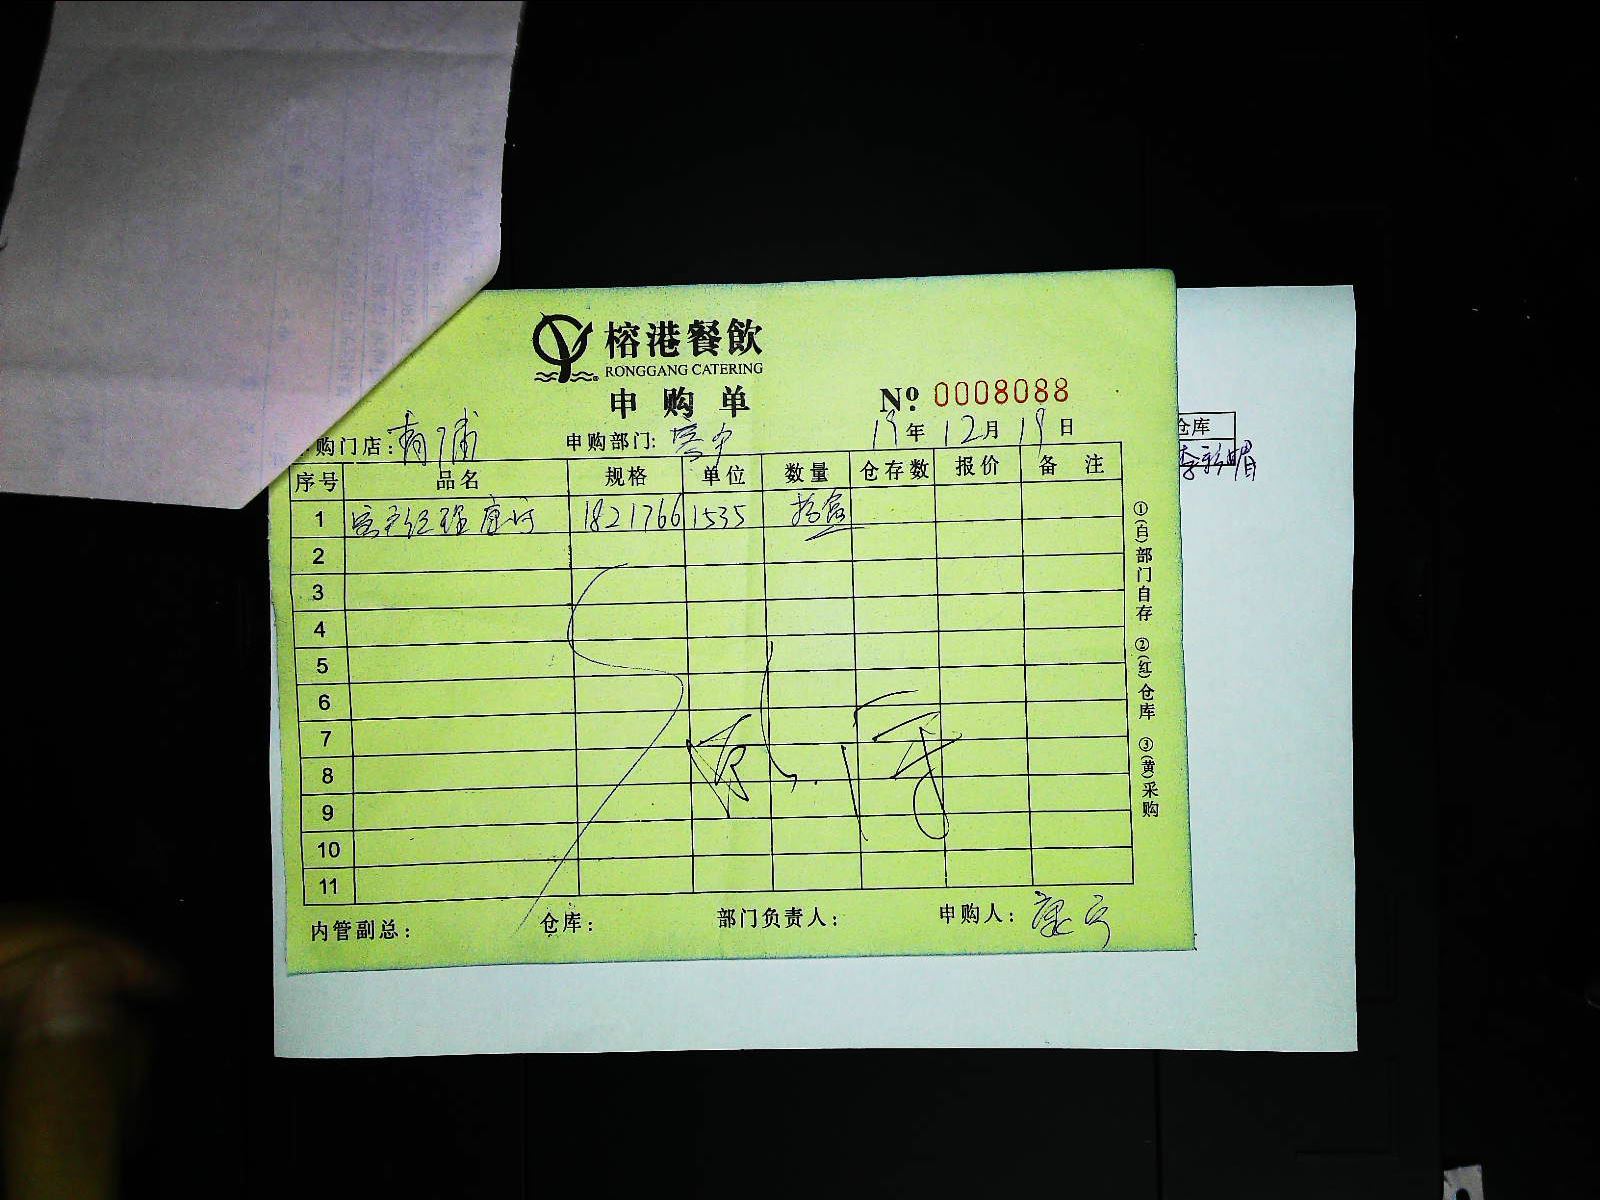 榕港餐飲
RONGGANG CATERING
申购单
Nº. 0008088
购门店: 青浦 申购部门: 19年12月19日
序号 品名 规格 单位 数量 仓存数 报价 备注
1 客户经理唐 1821766 1535 拾盒
2
3
4
5
6
7
8
9
10
11
内管副总: 仓库: 部门负责人: 申购人:
①(白)部门自存 ②(红)仓库 ③(黄)采购
仓库